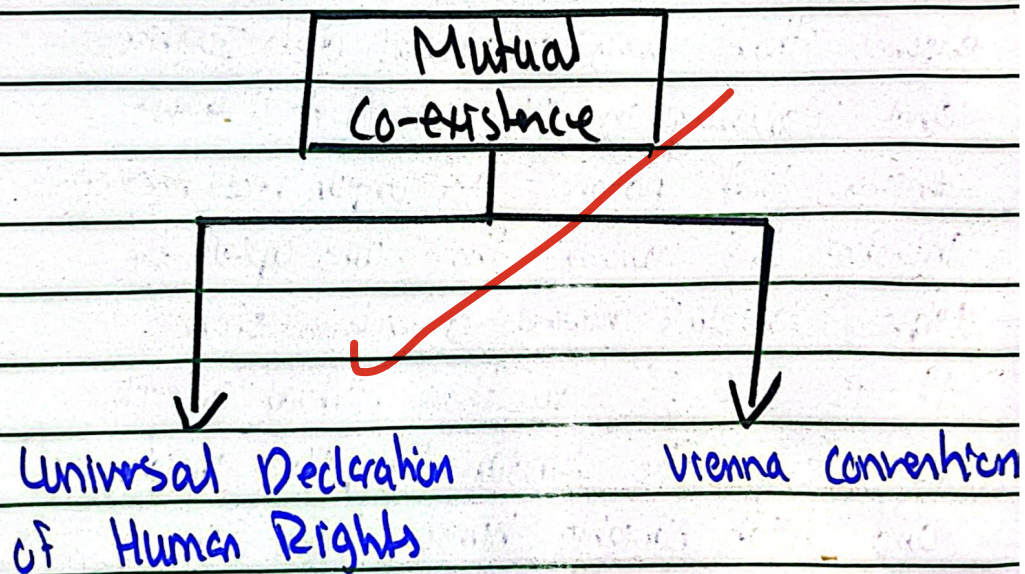 Mutual
Co-existence
Universal Declaration
of Human Rights
Vienna Convention